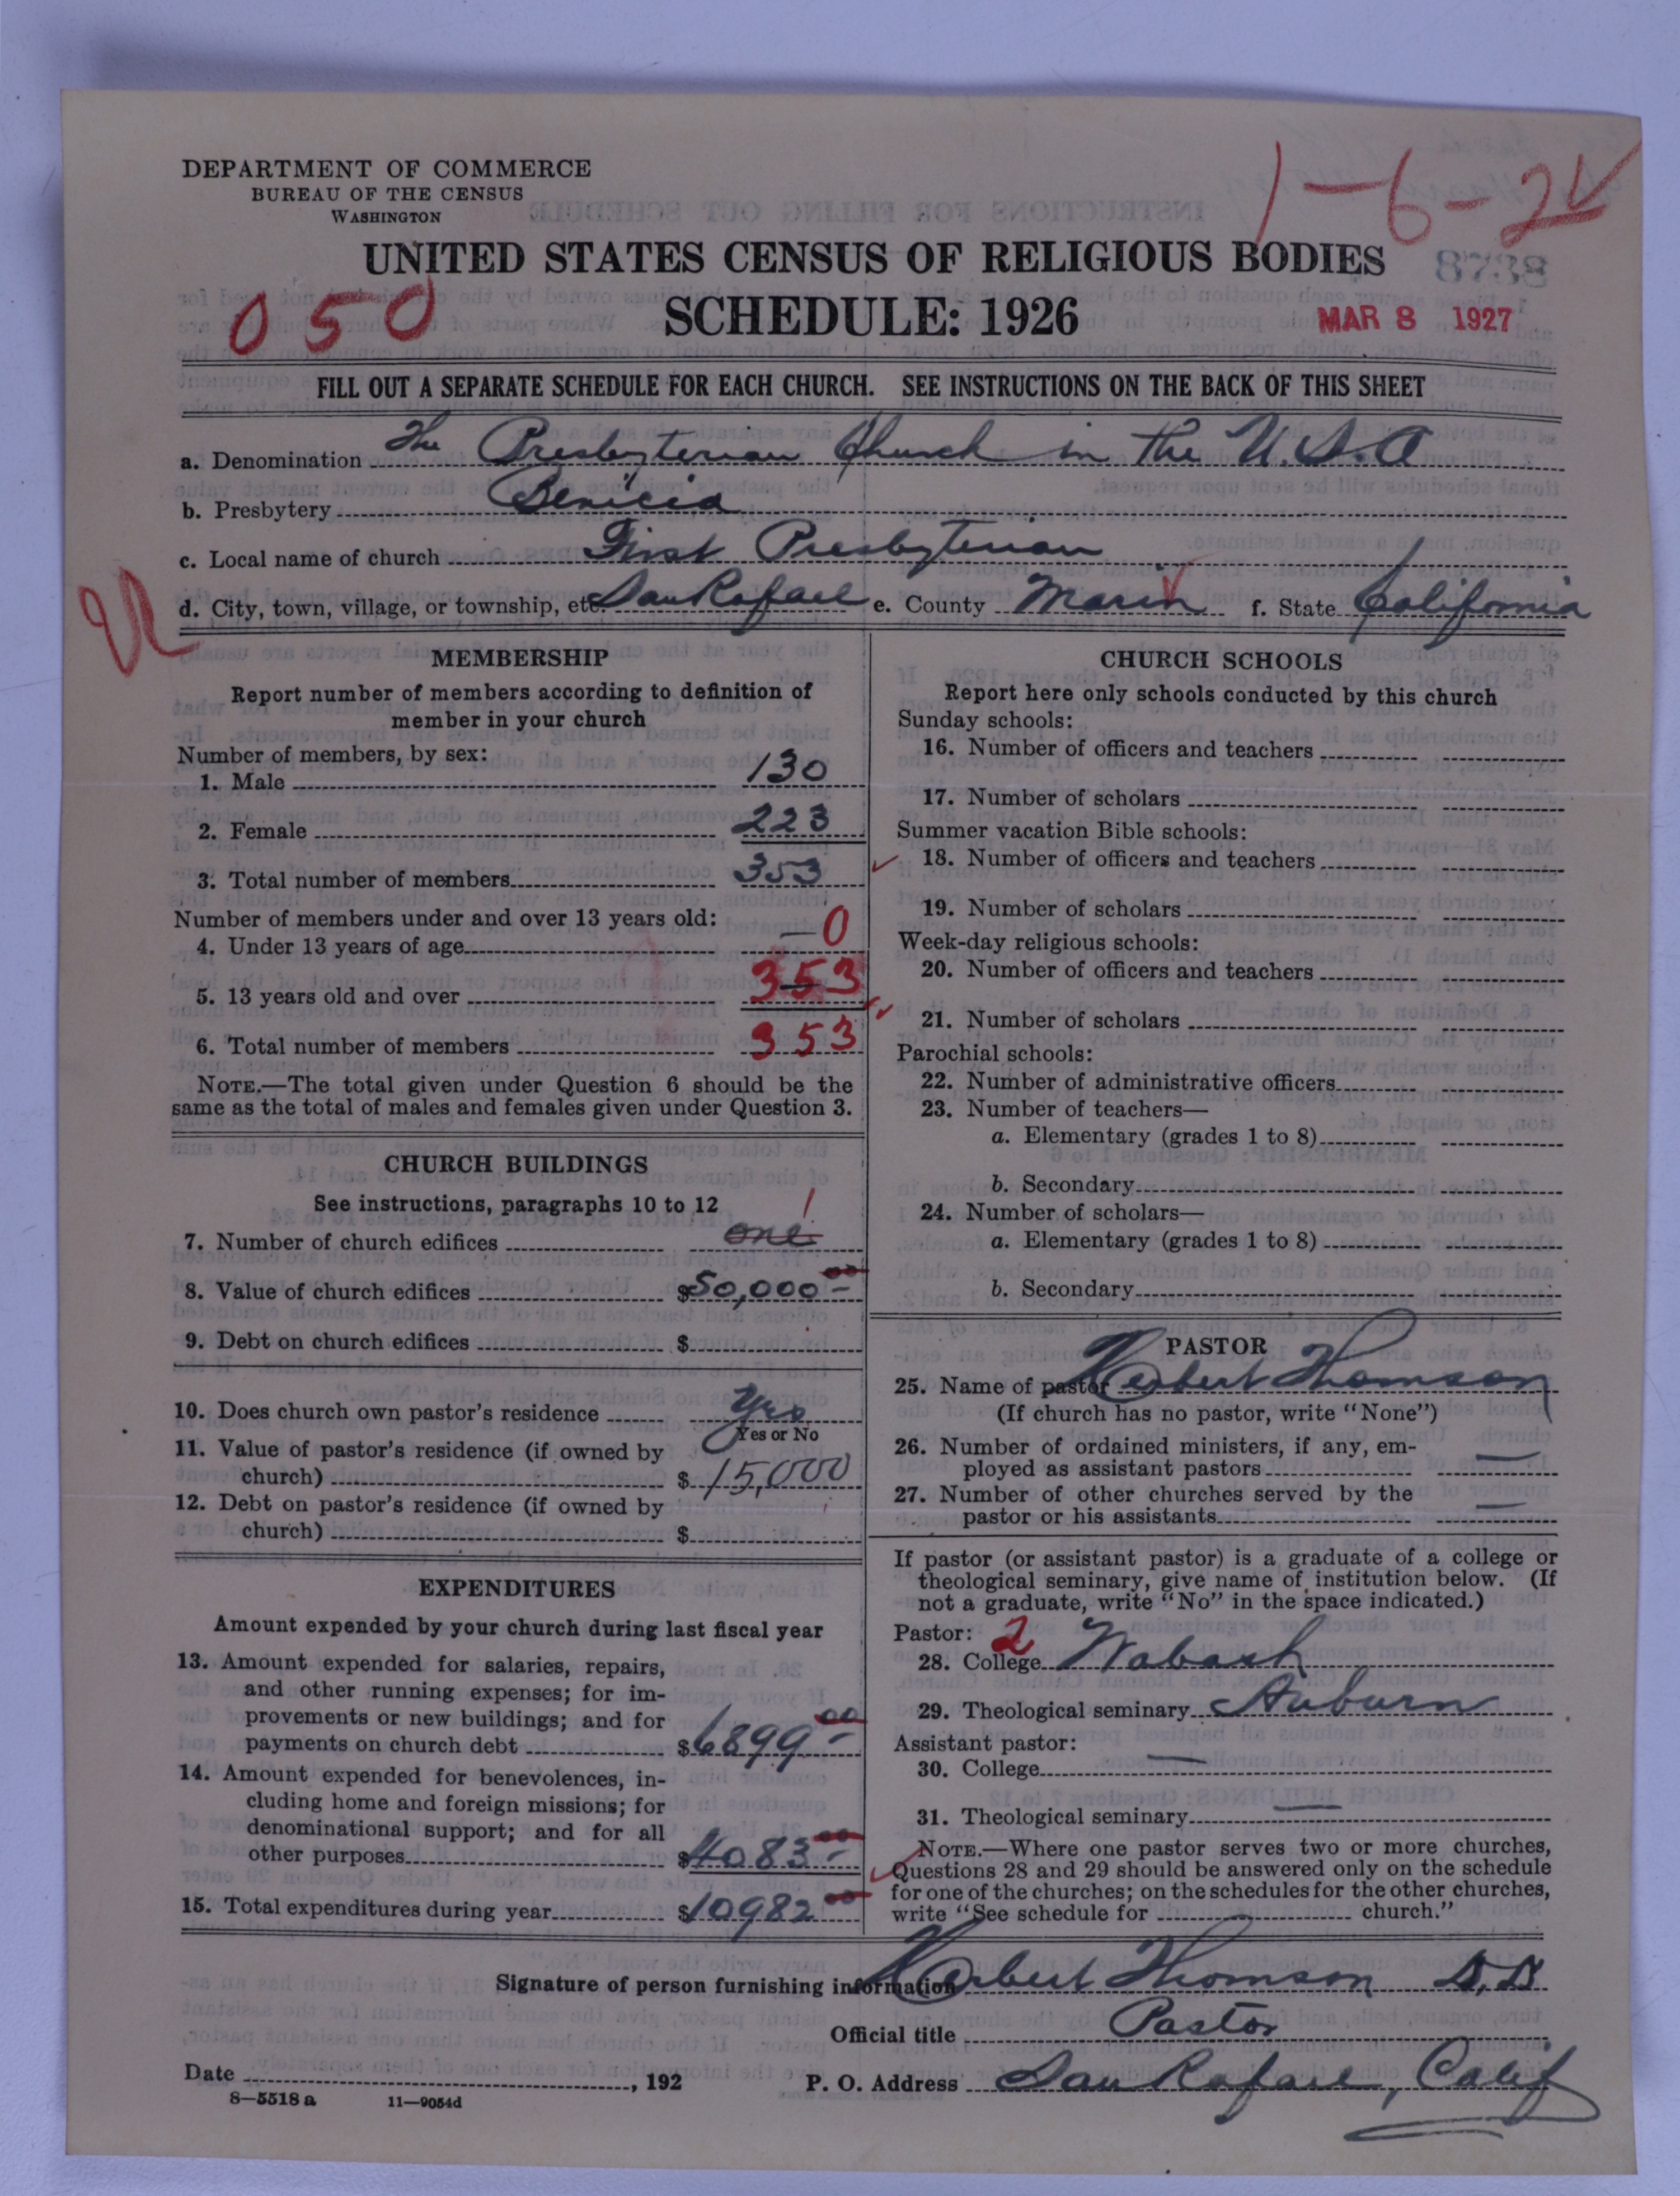 DEPARTMENT OF COMMERCE
BUREAU OF THE CENSUS
WASHINGTON
1-6-2
UNITED STATES CENSUS OF RELIGIOUS BODIES
8738
050
SCHEDULE: 1926
MAR 8 1927
FILL OUT A SEPARATE SCHEDULE FOR EACH CHURCH. SEE INSTRUCTIONS ON THE BACK OF THIS SHEET
a. Denomination The Presbyterian Church in the U.S.A
b. Presbytery Benicia
c. Local name of church First Presbyterian
d. City, town, village, or township, etc. San Rafael e. County Marin f. State California
MEMBERSHIP
Report number of members according to definition of
member in your church
Number of members, by sex:
1. Male 130
2. Female 223
3. Total number of members 353
Number of members under and over 13 years old:
4. Under 13 years of age — 0
5. 13 years old and over 353
6. Total number of members 353
NOTE.—The total given under Question 6 should be the
same as the total of males and females given under Question 3.
CHURCH BUILDINGS
See instructions, paragraphs 10 to 12
7. Number of church edifices one 1
8. Value of church edifices $50,000 00
9. Debt on church edifices $
10. Does church own pastor's residence Yes
Yes or No
11. Value of pastor's residence (if owned by
church) $15,000
12. Debt on pastor's residence (if owned by
church) $
EXPENDITURES
Amount expended by your church during last fiscal year
13. Amount expended for salaries, repairs,
and other running expenses; for im-
provements or new buildings; and for
payments on church debt $6899 00
14. Amount expended for benevolences, in-
cluding home and foreign missions; for
denominational support; and for all
other purposes $4083 00
15. Total expenditures during year $10982 00
CHURCH SCHOOLS
Report here only schools conducted by this church
Sunday schools:
16. Number of officers and teachers
17. Number of scholars
Summer vacation Bible schools:
18. Number of officers and teachers
19. Number of scholars
Week-day religious schools:
20. Number of officers and teachers
21. Number of scholars
Parochial schools:
22. Number of administrative officers
23. Number of teachers—
a. Elementary (grades 1 to 8)
b. Secondary
24. Number of scholars—
a. Elementary (grades 1 to 8)
b. Secondary
PASTOR
25. Name of pastor Herbert Thomson
(If church has no pastor, write "None")
26. Number of ordained ministers, if any, em-
ployed as assistant pastors —
27. Number of other churches served by the
pastor or his assistants —
If pastor (or assistant pastor) is a graduate of a college or
theological seminary, give name of institution below. (If
not a graduate, write "No" in the space indicated.)
Pastor: 2
28. College Wabash
29. Theological seminary Auburn
Assistant pastor:
30. College —
31. Theological seminary —
NOTE.—Where one pastor serves two or more churches,
Questions 28 and 29 should be answered only on the schedule
for one of the churches; on the schedules for the other churches,
write "See schedule for church."
Signature of person furnishing information Herbert Thomson D.D.
Official title Pastor
Date , 192
P. O. Address San Rafael, Calif
8—5518 a 11—9054d